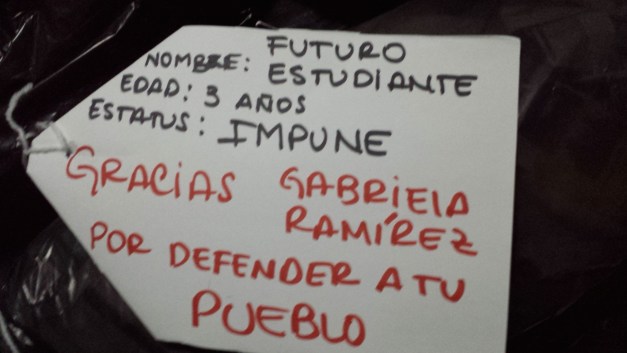 FUTURO
NOMBRE: ESTUDIANTE
EDAD: 3 AÑOS
ESTATUS: IMPUNE
GRACIAS GABRIELA
RAMÍREZ
POR DEFENDER A TU
PUEBLO